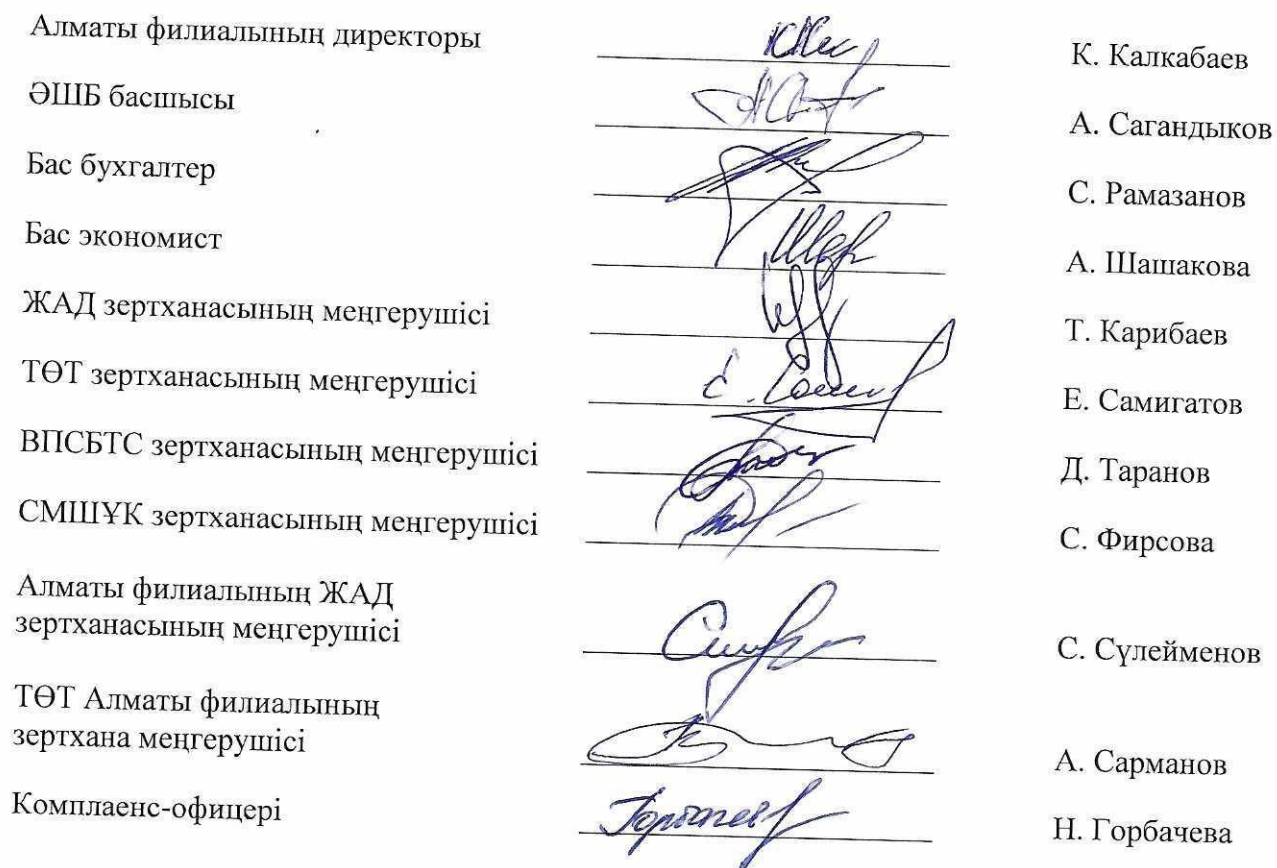 Алматы филиалының директоры К. Калкабаев
ӘШБ басшысы А. Сагандыков
Бас бухгалтер С. Рамазанов
Бас экономист А. Шашакова
ЖАД зертханасының меңгерушісі Т. Карибаев
ТӨТ зертханасының меңгерушісі Е. Самигатов
ВПСБТС зертханасының меңгерушісі Д. Таранов
СМШҰК зертханасының меңгерушісі С. Фирсова
Алматы филиалының ЖАД
зертханасының меңгерушісі С. Сүлейменов
ТӨТ Алматы филиалының
зертхана меңгерушісі А. Сарманов
Комплаенс-офицері Н. Горбачева